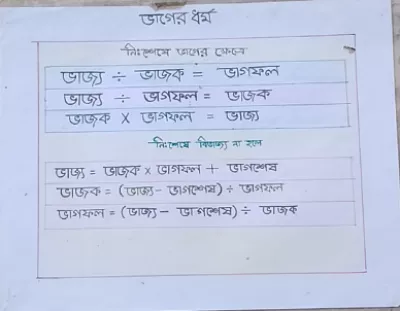 ভাগের ধর্ম
নিঃশেষে ভাগের ক্ষেত্রে
ভাজ্য ÷ ভাজক = ভাগফল
ভাজ্য ÷ ভাগফল = ভাজক
ভাজক × ভাগফল = ভাজ্য
নিঃশেষে বিভাজ্য না হলে
ভাজ্য = ভাজক × ভাগফল + ভাগশেষ
ভাজক = (ভাজ্য - ভাগশেষ) ÷ ভাগফল
ভাগফল = (ভাজ্য - ভাগশেষ) ÷ ভাজক